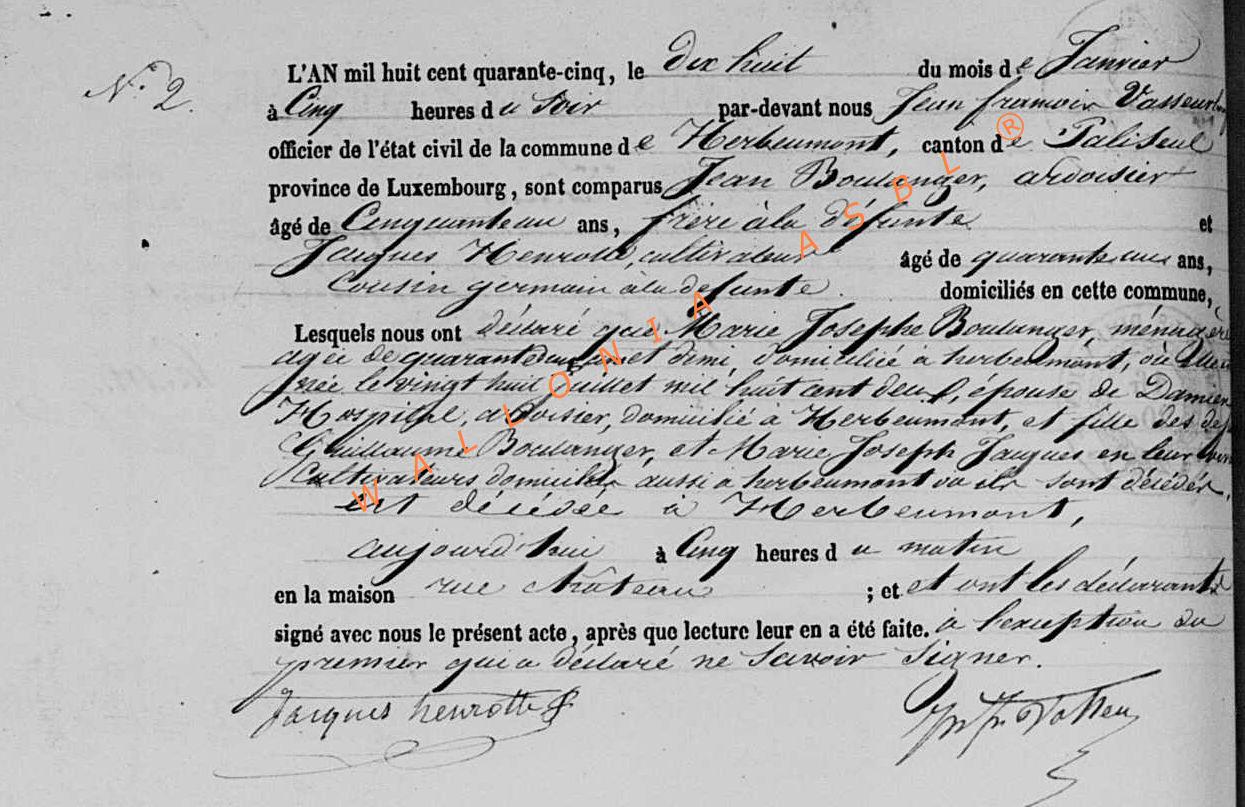 N.° 2.
L'AN mil huit cent quarante-cinq, le dix huit du mois de Janvier
à Cinq heures du soir par-devant nous Jean françois
officier de l'état civil de la commune de Herbeumont, canton de Paliseul
province de Luxembourg, sont comparus Jean Boulanger, ardoisier
âgé de ans, frère à la défunte et
Jacques Henrotte, cultivateur âgé de quarante ans,
Cousin germain à la defunte. domiciliés en cette commune,
Lesquels nous ont déclaré que Marie Josephe Boulanger, ménagère
agée de quarante deux ans et demi, domiciliée à herbeumont, où
née le vingt huit juillet mil huit cent deux, épouse de Damien
ardoisier, domicilié à Herbeumont, et fille des
Guillaume Boulanger, et Marie Joseph Jacques en leur
Cultivateurs domiciliés aussi a herbeumont où ils sont décédés,
est décédée à Herbeumont,
aujourd'hui à Cinq heures du matin
en la maison rue château ; et et ont les déclarants
signé avec nous le présent acte, après que lecture leur en a été faite. à l'exception du
premier qui a déclaré ne savoir signer.
Jacques henrotte
WALLONIA ASBL ®